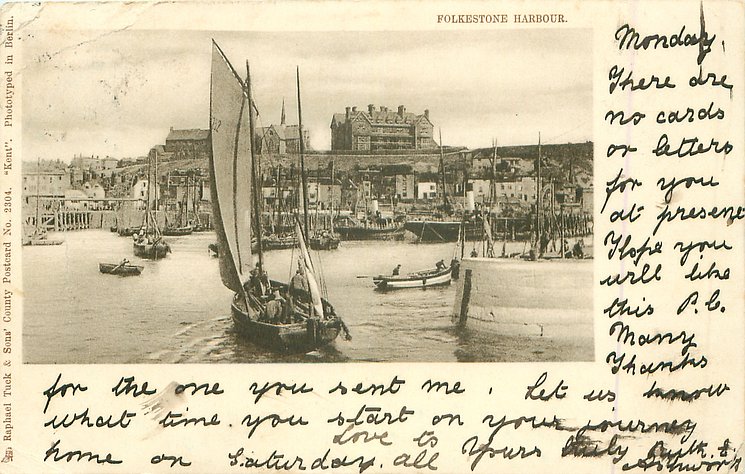 FOLKESTONE HARBOUR.
Raphael Tuck & Sons' County Postcard No. 2304. "Kent". Phototyped in Berlin.
Monday,
There are
no cards
or letters
for you
at present
Hope you
will like
this P.C.
Many
Thanks
for the one you sent me. Let us know
what time you start on your journey
home on Saturday. Love to all Yours truly Ruth &